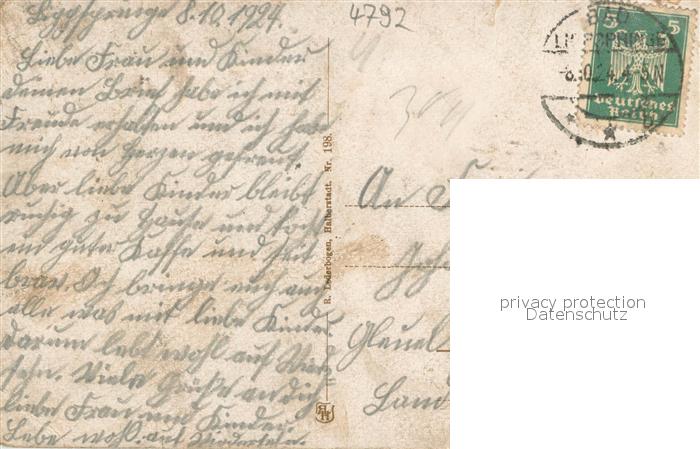 Lippspringe 8.10.1924.
Liebe Frau und Kinder
deinen Brief habe ich mit
Freude erhalten und ich habe
mich von Herzen gefreut.
Aber liebe Kinder bleibt
ruhig zu Hause und kocht
ein guten Kaffe und seit
brav. Ich bringe euch auch
alle was mit liebe Kinder
darum lebt wohl auf Wieder
sehn. Viele Grüße an dich
liebe Frau und Kinder.
Lebe wohl auf Wiedersehn.
4792
BAD
5 5
8.10.24.4-5N
Deutsches
Reich
R. Lederbogen, Halberstadt. Nr. 198.
An
Gleuel
Land
privacy protection
Datenschutz